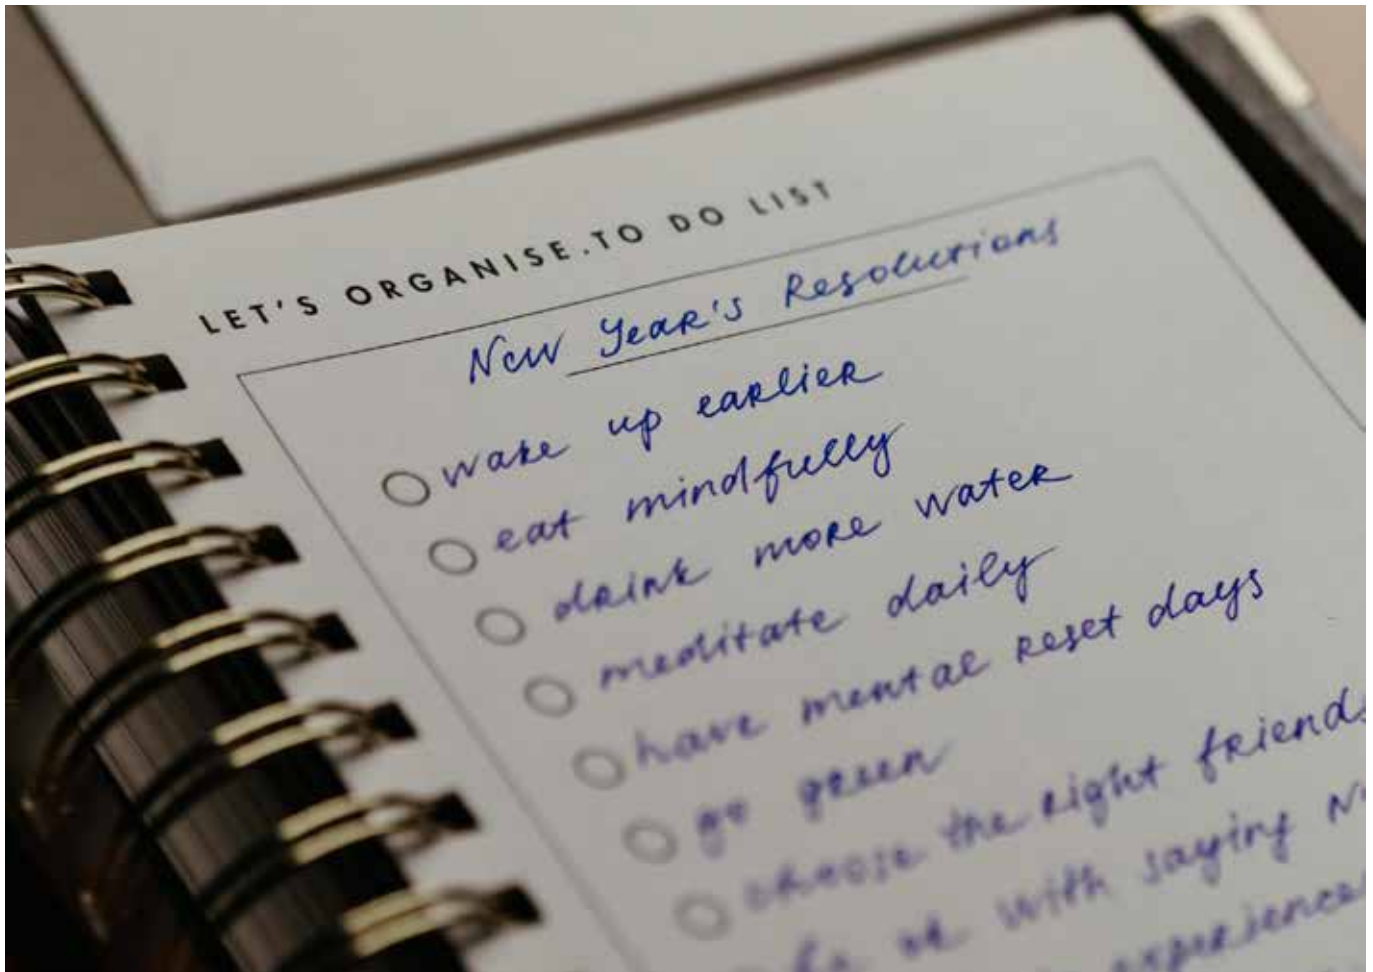 LET'S ORGANISE.TO DO LIST
New Year's Resolutions
wake up earlier
eat mindfully
drink more water
meditate daily
have mental reset days
go green
choose the right friends
be ok with saying
experiences